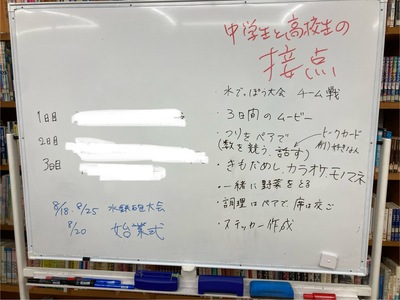 中学生と高校生の
接点
・水でっぽう大会 チーム戦
・3日間のムービー
・つりをペアで
(数を競う、話す)
トークカード
例)好きな人
・きもだめし、カラオケ、モノマネ
・一緒に野菜をとる
・調理はペアで、席は交ご
・ステッカー作成
1日目
2日目
3日目
8/18. 8/25 水鉄砲大会
8/20 始業式